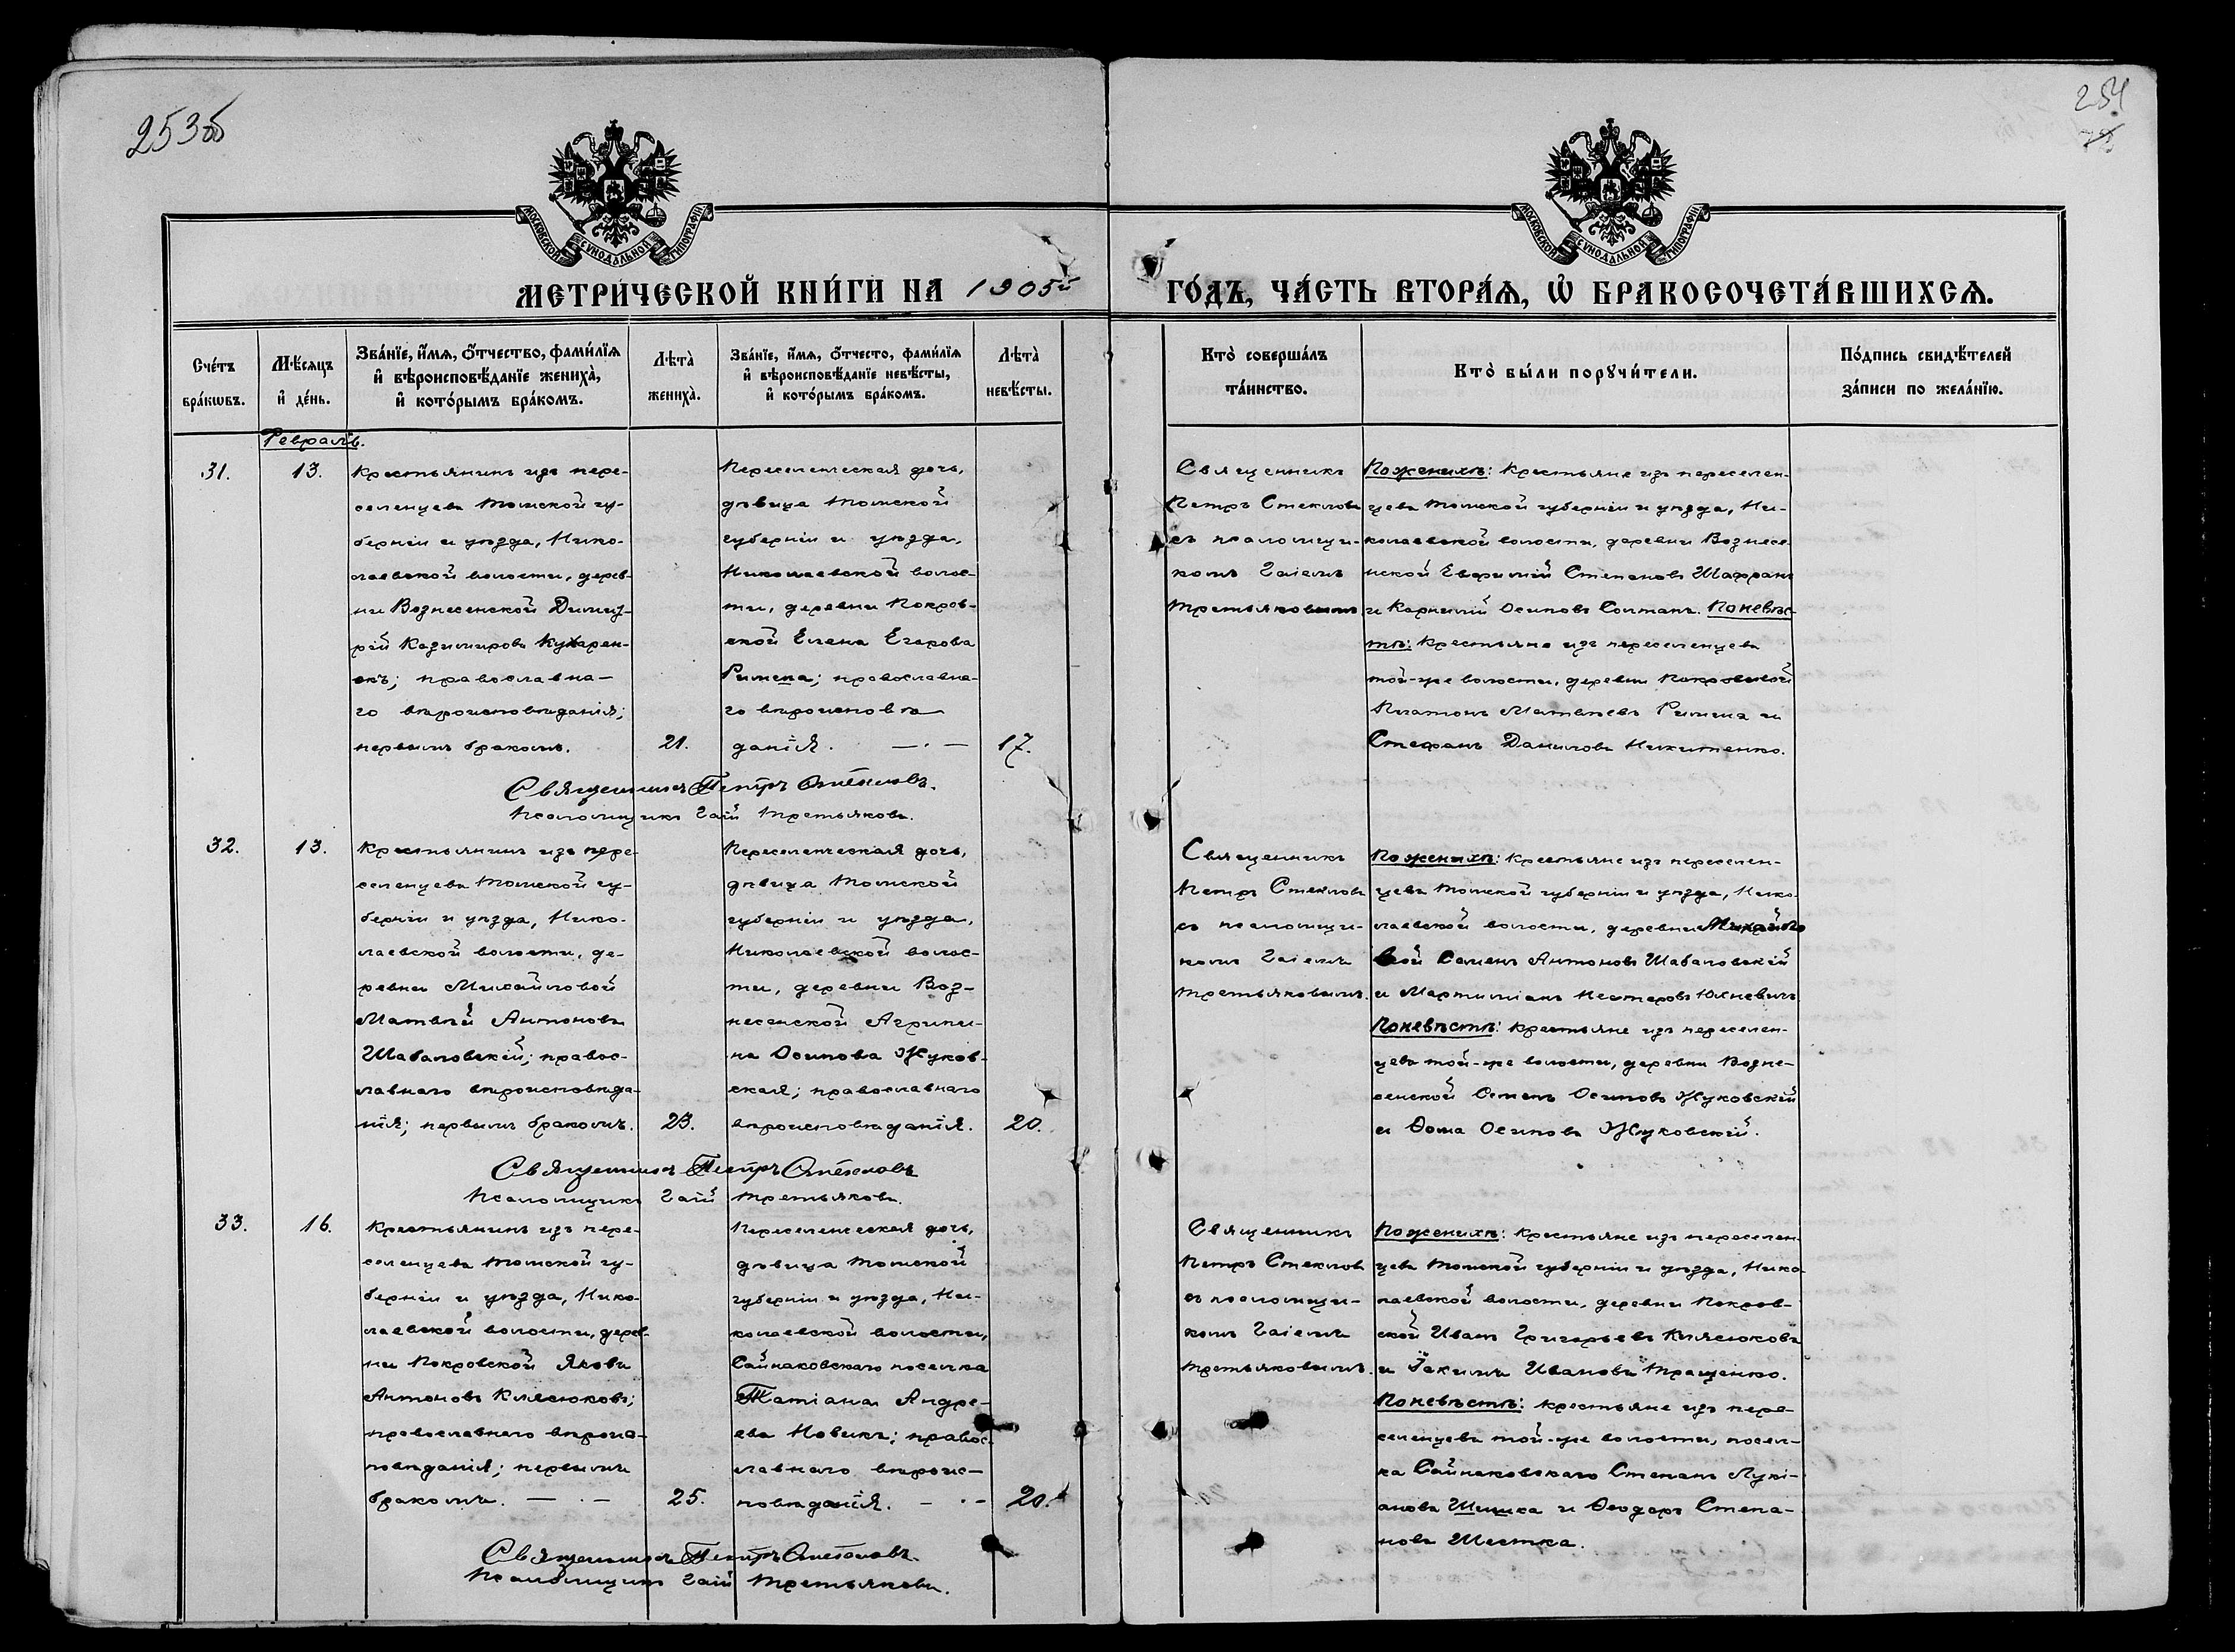 253об
254
МОСКОВСКОЙ СѴНОДАЛЬНОЙ ТИПОГРАФІИ
МОСКОВСКОЙ СѴНОДАЛЬНОЙ ТИПОГРАФІИ
МЕТРИ́ЧЕСКОЙ КНИ́ГИ НА 1905й ГО́ДЪ, ЧА́СТЬ ВТОРА́Ѧ, Ѡ҆ БРАКОСОЧЕТА́ВШИХСѦ.
Сче́тъ бра́кѡвъ.
Мѣ́сѧцъ и҆ де́нь.
Зва́нїе, и҆́мѧ, ѻ҆́тчество, фами́лїѧ и҆ вѣроисповѣ́данїе жениха̀, и҆ кото́рымъ бра́комъ.
Лѣта̀ жениха̀.
Зва́нїе, и҆́мѧ, ѻ҆́тчесто, фами́лїѧ и҆ вѣроисповѣ́данїе невѣ́сты, и҆ кото́рымъ бра́комъ.
Лѣта̀ невѣ́сты.
Кто̀ соверша́лъ та́инство.
Кто̀ бы́ли порꙋчи́тели.
По́дпись свидѣ́телей за́писи по жела́нїю.
Февраль.
31.
13.
Крестьянинъ изъ пере-
селенцевъ Томской гу-
берніи и уѣзда, Нико-
лаевской волости, дерев-
ни Вознесенской Димит-
рій Казимировъ Кухарен-
окъ; православна-
го вѣроисповѣданія;
первымъ бракомъ.
21.
Переселенческая дочь,
дѣвица Томской
губерніи и уѣзда,
Николаевской волос-
ти, деревни Покров-
ской Елена Егорова
Римена; православна-
го вѣроисповѣ
данія. — . —
17.
Священникъ
Петръ Стекловъ
съ псаломщи-
комъ Гаіемъ
Третьяковымъ.
По женихѣ: Крестьяне изъ переселен-
цевъ Томской губерніи и уѣзда, Ни-
колаевской волости, деревни Вознесе-
нской Евфимій Степановъ Шафранъ
и Корнилій Осиповъ Солтанъ. По невѣс-
тѣ: Крестьяне изъ переселенцевъ
той-же волости, деревни Покровской
Платонъ Матвѣевъ Римена и
Стефанъ Даниловъ Никитенко.
Священникъ Петръ Стекловъ.
Псаломщикъ Гаій Третьяковъ.
32.
13.
Крестьянинъ изъ пере-
селенцевъ Томской гу-
берніи и уѣзда, Нико-
лаевской волости, де-
ревни Михайловой
Матвѣй Антоновъ
Шабаловскій; правос-
лавнаго вѣроисповѣда-
нія; первымъ бракомъ.
23.
Переселенческая дочь,
дѣвица Томской
губерніи и уѣзда,
Николаевской волос-
ти, деревни Воз-
несенской Агрипи-
на Осипова Жуков-
ская; православнаго
вѣроисповѣданія.
20.
Священникъ
Петръ Стекловъ
съ псаломщи-
комъ Гаіемъ
Третьяковымъ.
По женихѣ: Крестьяне изъ переселен-
цевъ Томской губерніи и уѣзда, Нико-
лаевской волости, деревни Михайло
вой Семенъ Антоновъ Шабаловскій
и Мартиміанъ Нестеровъ Юхневичъ
По невѣстѣ: Крестьяне изъ переселен-
цевъ той-же волости, деревни Возне-
сенской Семенъ Осиповъ Жуковскій
и Ѳома Осиповъ Жуковскій.
Священникъ Петръ Стекловъ
Псаломщикъ Гаій Третьяковъ.
33.
16.
Крестьянинъ изъ пере-
селенцевъ Томской гу-
берніи и уѣзда, Нико-
лаевской волости, дерев-
ни Покровской Яковъ
Антоновъ Клясюковъ;
православнаго вѣроис-
повѣданія; первымъ
бракомъ. — . —
25.
Переселенческая дочь,
дѣвица Томской
губерніи и уѣзда, Ни-
колаевской волости,
Сайнаковскаго поселка
Татіана Андре-
ева Новикъ; правос-
лавнаго вѣроис-
повѣданія. — . —
20.
Священникъ
Петръ Стекловъ
съ псаломщи-
комъ Гаіемъ
Третьяковымъ.
По женихѣ: Крестьяне изъ переселен-
цевъ Томской губерніи и уѣзда, Нико-
лаевской волости, деревни Покров-
ской Иванъ Григорьевъ Клясюковъ
и Іакимъ Ивановъ Трощенко.
По невѣстѣ: Крестьяне изъ пере-
селенцевъ той-же волости, посел-
ка Сайнаковскаго Степанъ Лукі-
ановъ Шишка и Ѳеодоръ Степа-
новъ Шестка.
Священникъ Петръ Стекловъ.
Псаломщикъ Гаій Третьяковъ.